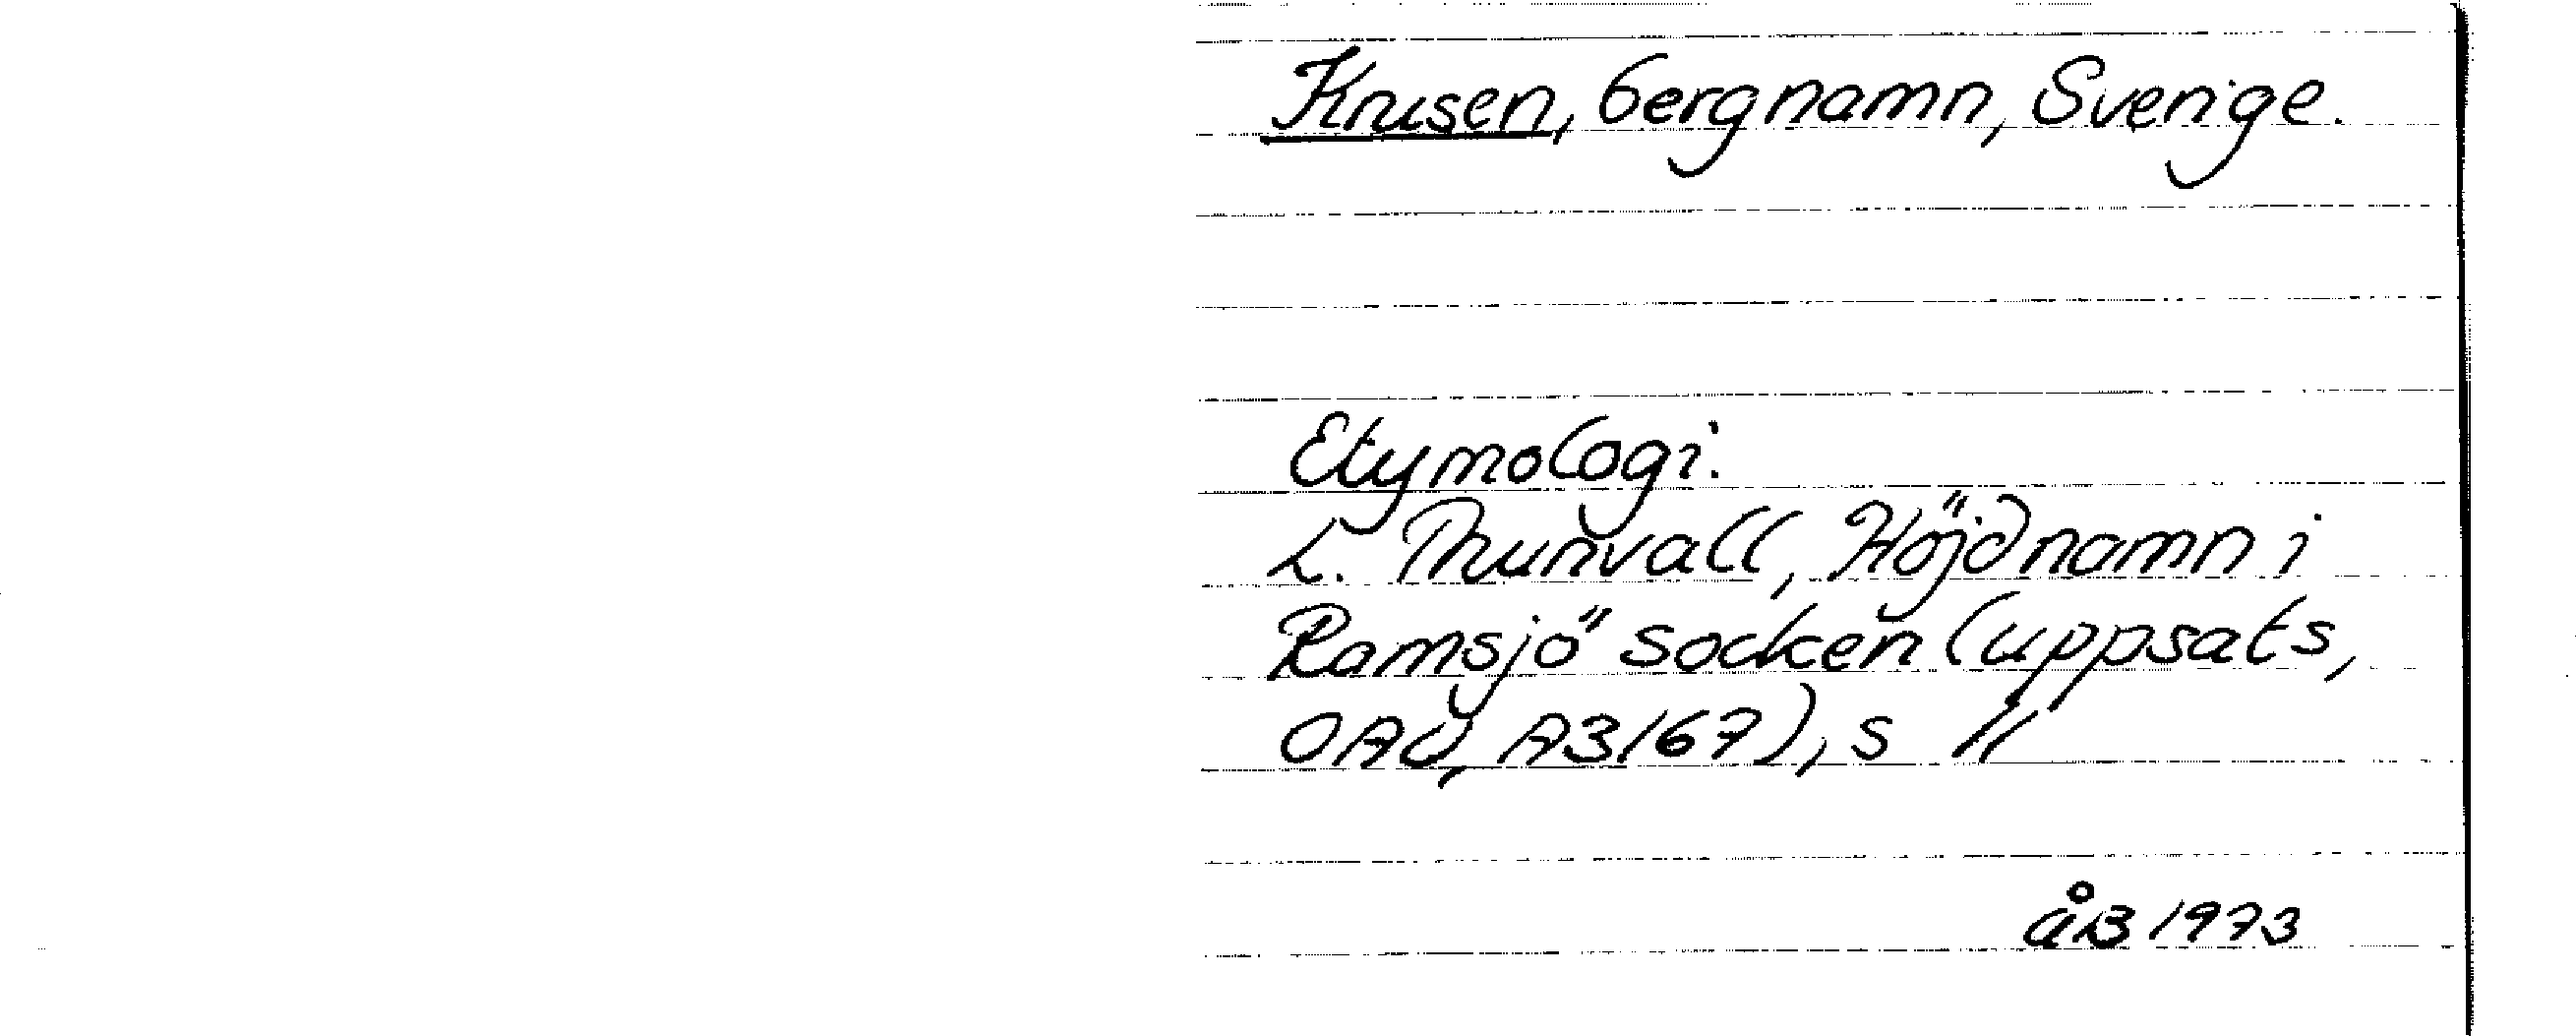 Krusen, bergnamn, Sverige.
Etymologi:
L. Thunvall, Höjdnamn i
Ramsjö socken (uppsats,
OAU, A3167), s 11
åB 1973